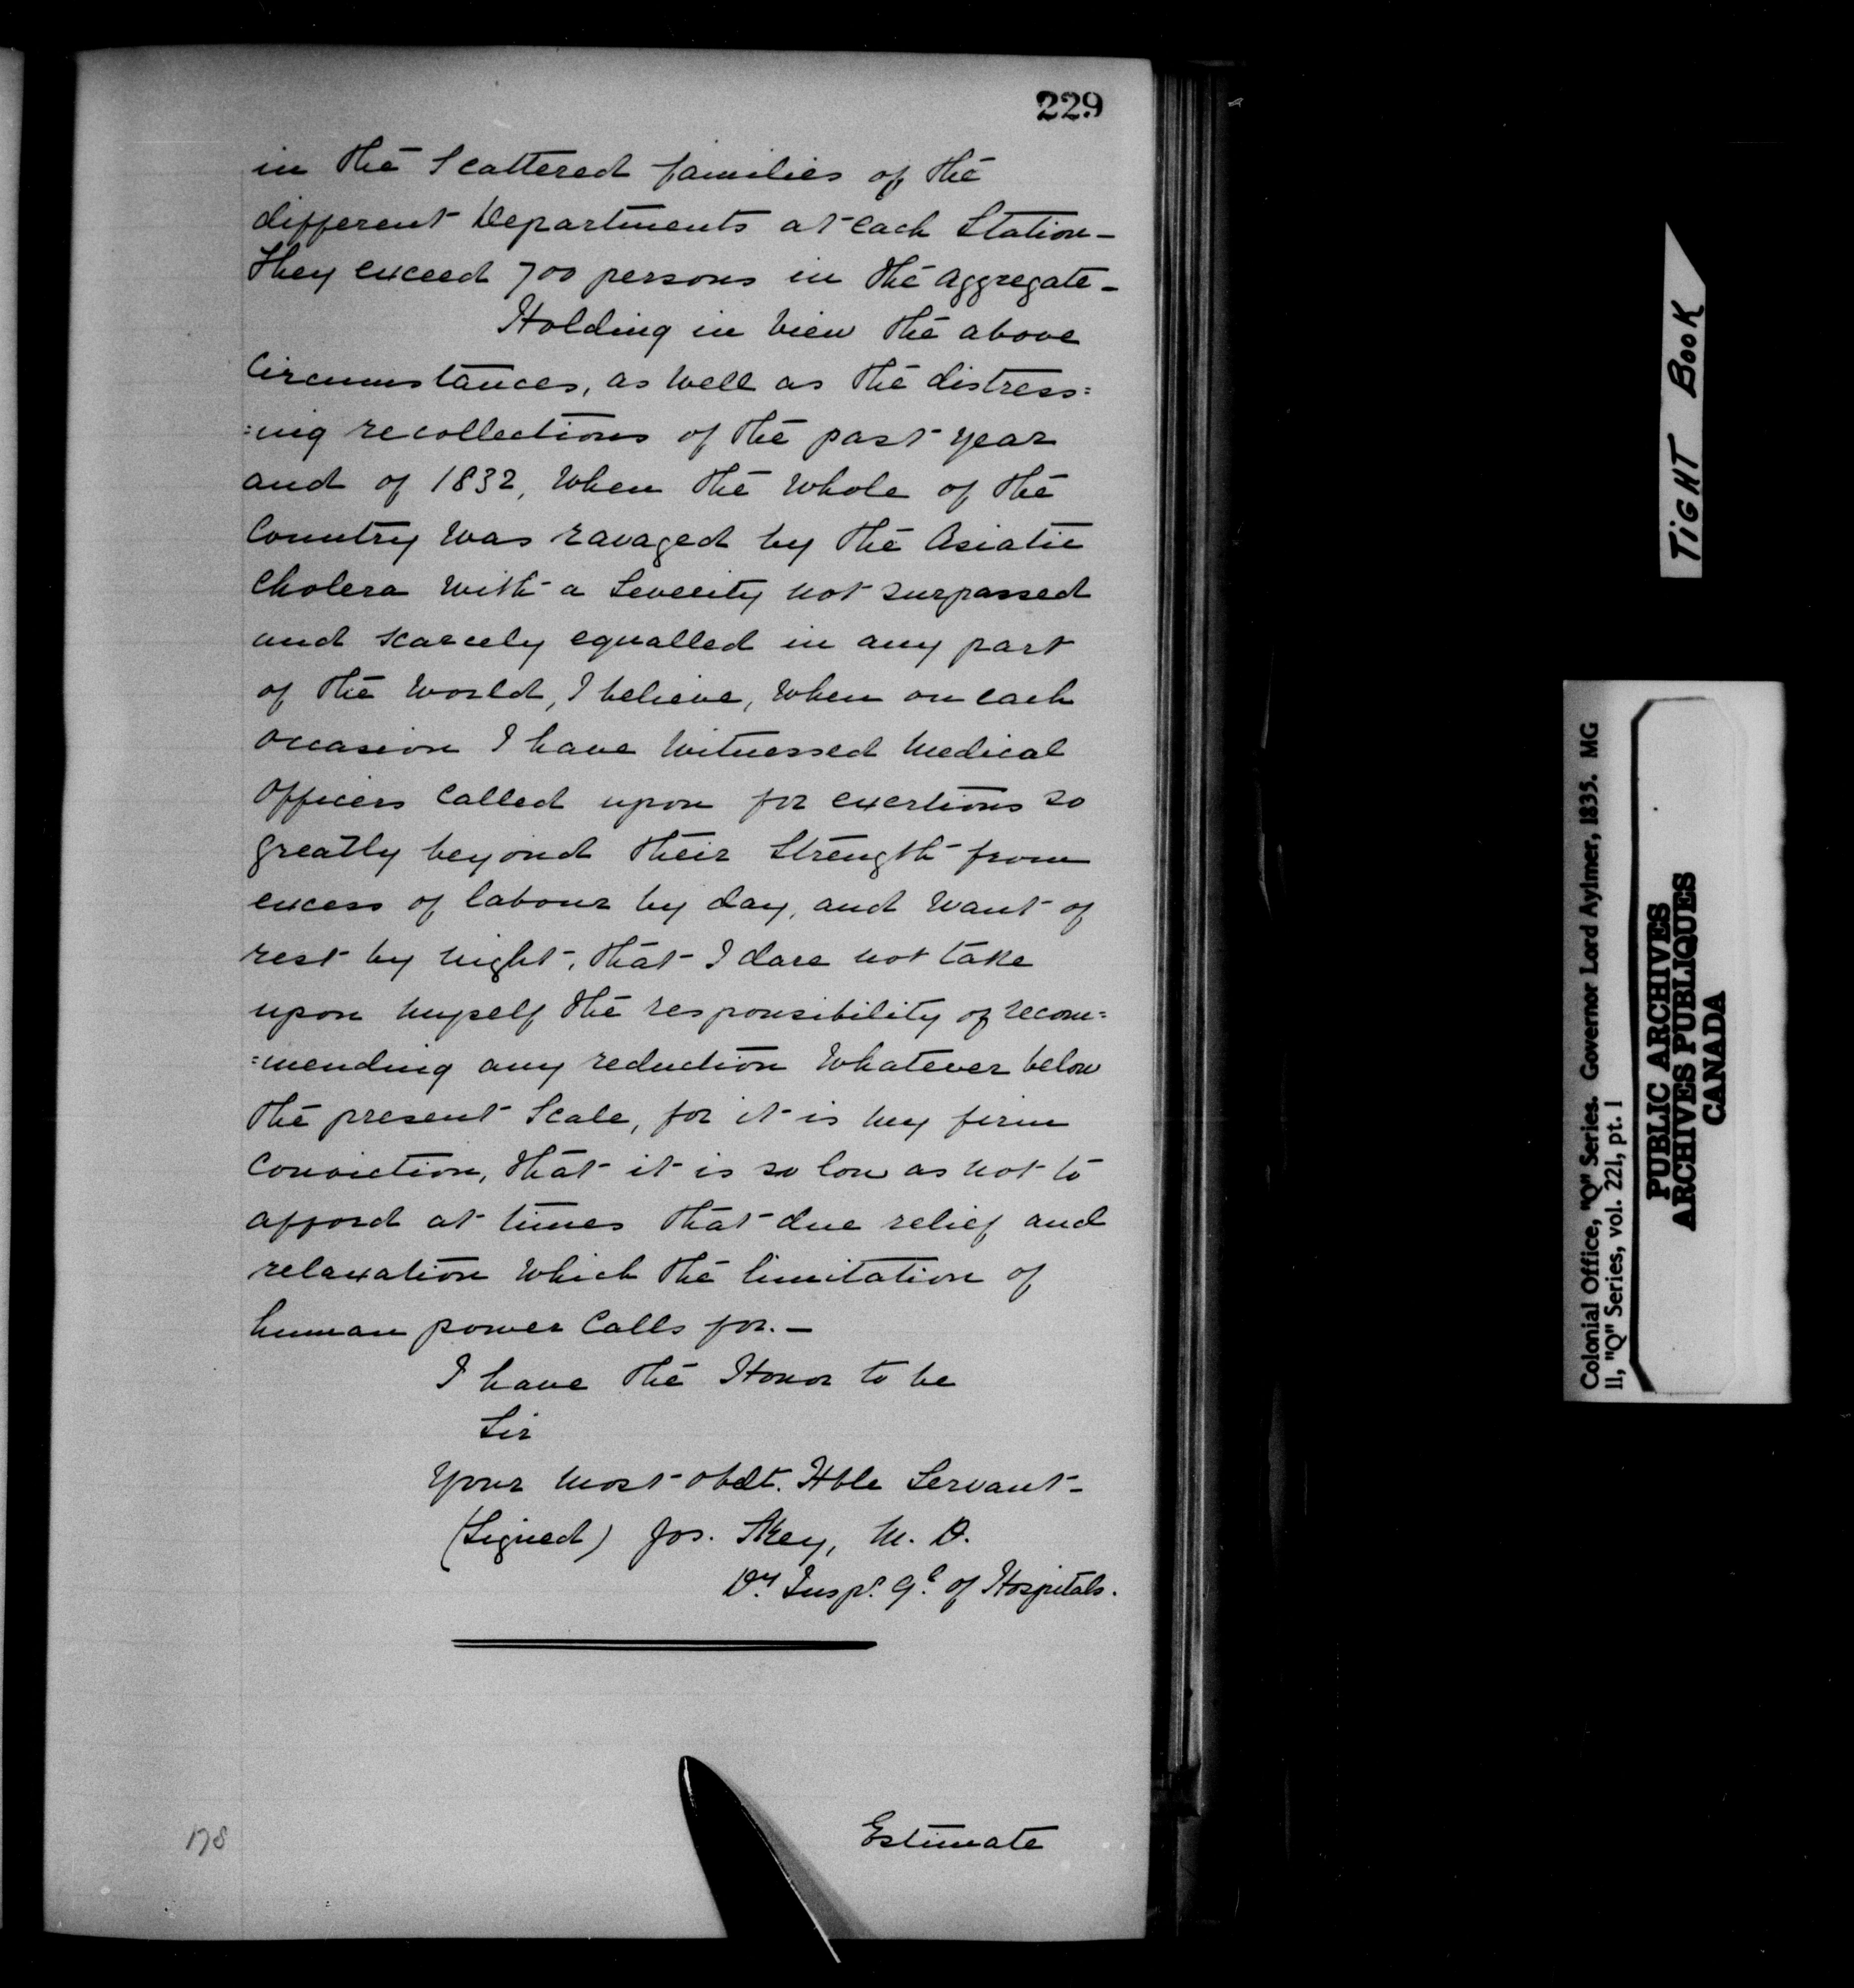 229
in the Scattered families of the
different Departments at each Station -
They exceed 700 persons in the aggregate -
Holding in view the above
Circumstances, as well as the distress=
=ing recollections of the past year
and of 1832, When the Whole of the
Country was ravaged by the Asiatic
Cholera with a Severity not surpassed
and scarcely equalled in any part
of the World, I believe, When on each
occasion I have Witnessed Medical
Officers Called upon for exertions so
greatly beyond their Strength from
excess of labour by day, and Want of
rest by night, that I dare not take
upon myself the responsibility of recom=
=mending any reduction Whatever below
the present Scale, for it is my firm
Conviction, that it is so low as not to
afford at times that due relief and
relaxation Which the limitation of
human power Calls for. -
I have the Honor to be
Sir
Your Most Obdt. Hble Servant -
(Signed) Jos. Skey, M. D.
Dy. Inspr. Gl. of Hospitals.
Estimate
178
TIGHT BOOK
Colonial Office, "Q" Series. Governor Lord Aylmer, 1835. MG
11, "Q" Series, vol. 221, pt. 1
PUBLIC ARCHIVES
ARCHIVES PUBLIQUES
CANADA